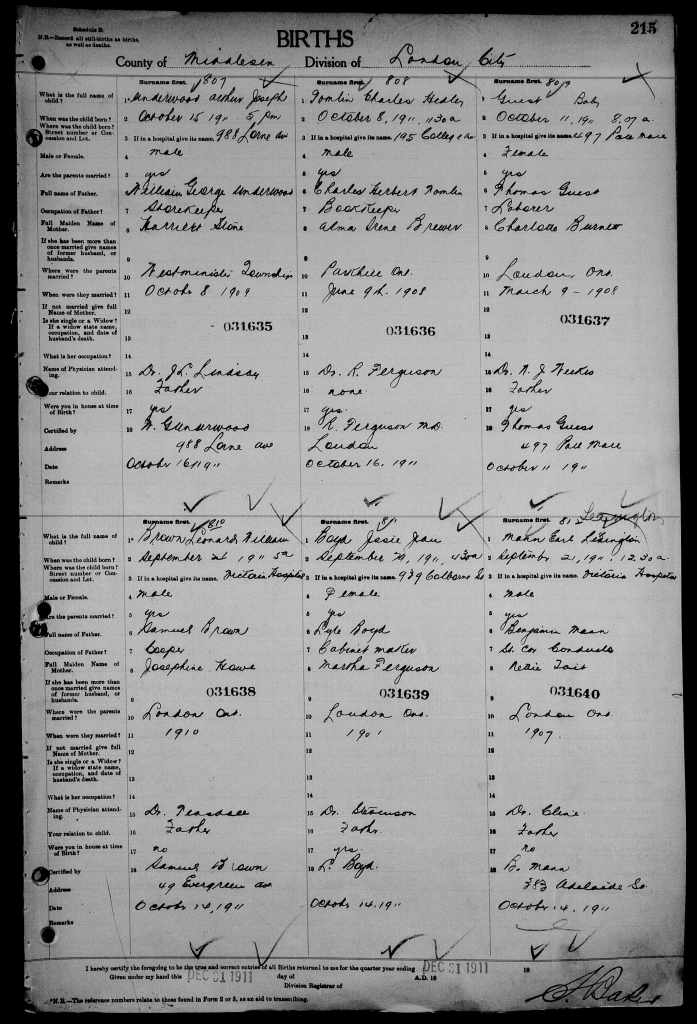 215
Schedule B.
N.B.—Record all still-births as births, as well as deaths.
BIRTHS
County of Middlesex Division of London City
Surname first. 807 Surname first. 808 Surname first. 809
What is the full name of child? 1 Underwood Arthur Joseph 1 Tomlin Charles Hedley 1 Guest Baby
When was the child born? 2 October 15 1911 5 pm 2 October 8, 1911, 1130a 2 October 11, 1911 8.07 a
Where was the child born? Street number or Concession and Lot. 3 If in a hospital give its name. 988 Lorne av 3 If in a hospital give its name. 195 College av 3 If in a hospital give its name. 497 Pall Mall
Male or Female. 4 male 4 male 4 Female
Are the parents married? 5 yes 5 yes 5 yes
Full name of Father. 6 William George Underwood 6 Charles Herbert Tomlin 6 Thomas Guest
Occupation of Father? 7 Storekeeper 7 Bookkeeper 7 Laborer
Full Maiden Name of Mother. 8 Harriett Stone 8 Alma Irene Brewer 8 Charlotte Burnett
If she has been more than once married give names of former husband, or husbands. 9 9 9
Where were the parents married? 10 Westminister Township 10 Parkhill Ont. 10 London, Ont.
When were they married? 11 October 8 1909 11 June 9th. 1908 11 March 9 - 1908
If not married give full Name of Mother. 12 12 12
Is she single or a Widow? If a widow state name, occupation, and date of husband's death. 13 031635 13 031636 13 031637
What is her occupation? 14 14 14
Name of Physician attending. 15 Dr. J.L. Lindsay 15 Dr. R. Ferguson 15 Dr. N. J Weekes
Your relation to child. 16 Father 16 none 16 Father
Were you in house at time of Birth? 17 yes 17 yes. 17 yes
Certified by 18 W. G Underwood 18 R. Ferguson M.D. 18 Thomas Guest
Address 988 Lorne av London 497 Pall Mall
Date October 16 1911 October 16, 1911 October 11 1911
Remarks
Lexington
Surname first. 810 Surname first. 811 Surname first. 812
What is the full name of child? 1 Brown Leonard William 1 Boyd Jesie Jean 1 Mann Earl Lexington
When was the child born? 2 September 21 1911 5a 2 September 1911, 430a 2 September 21, 1911, 12.30 a
Where was the child born? Street number or Concession and Lot. 3 If in a hospital give its name. Victoria Hospital 3 If in a hospital give its name. 939 Colborne St 3 If in a hospital give its name. Victoria Hospital
Male or Female. 4 male 4 Female 4 male
Are the parents married? 5 yes 5 yes 5 yes
Full name of Father. 6 Samuel Brown 6 Lyle Boyd 6 Benjamin Mann
Occupation of Father? 7 Cooper 7 Cabinet maker 7 St. Car Conductor
Full Maiden Name of Mother. 8 Josephine Howe 8 Martha Ferguson 8 Tait
If she has been more than once married give names of former husband, or husbands. 9 031638 9 031639 9 031640
Where were the parents married? 10 London Ont. 10 London Ont. 10 London Ont.
When were they married? 11 1910 11 1901 11 1907.
If not married give full Name of Mother. 12 12 12
Is she single or a Widow? If a widow state name, occupation, and date of husband's death. 13 13 13
What is her occupation? 14 14 14
Name of Physician attending. 15 Dr. Teasdall 15 Dr. Stevenson 15 Dr. Cline
Your relation to child. 16 Father 16 Father 16 Father
Were you in house at time of Birth? 17 no 17 yes 17 no
Certified by 18 Samuel Brown 18 L. Boyd. 18 B. Mann
Address 49 Evergreen av 383 Adelaide St
Date October 14, 1911 October 14, 1911 October 4, 1911
Remarks
I hereby certify the foregoing to be the true and correct entries of all Births returned to me for the quarter year ending DEC 31 1911 18
Given under my hand this DEC 31 1911 day of A.D. 18
Division Registrar of
S. Baker
*N.B.—The reference numbers relate to those found in Form 2 or 3, as an aid to transcribing.